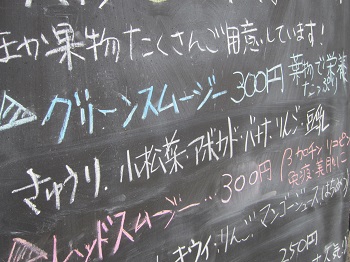 ほか果物たくさんご用意しています!
グリーンスムージー 300円 葉物で栄養たっぷり
きゅうり・小松菜・アボカド・バナナ・りんご・豆乳
レッドスムージー… 300円 βカロチン リコピン 免疫 美肌に
キウイ・りんご・マンゴージュース(はちみつ)
250円